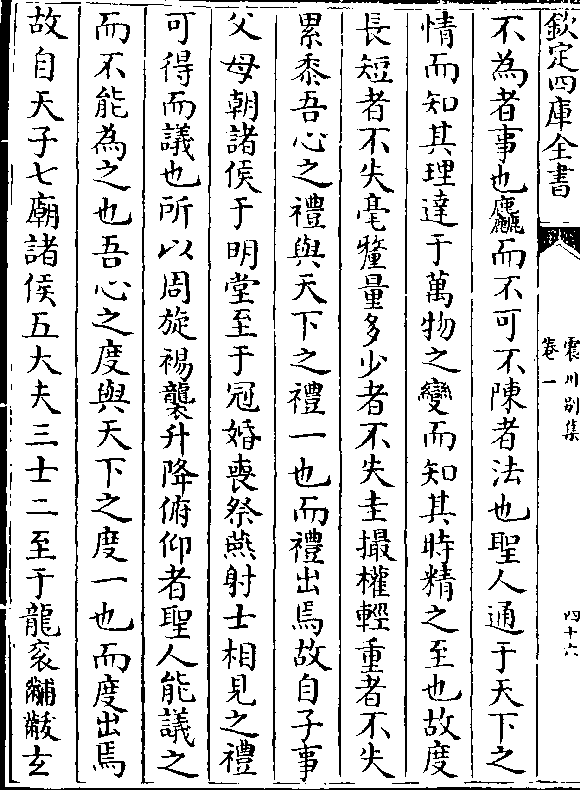 欽定四庫全書
震川別集
卷一
四十六
不為者事也麤而不可不陳者法也聖人通于天下之
情而知其理達于萬物之變而知其時精之至也故度
長短者不失毫釐量多少者不失圭撮權輕重者不失
累黍吾心之禮與天下之禮一也而禮出焉故自子事
父母朝諸侯于明堂至于冠婚喪祭燕射士相見之禮
可得而議也所以周旋裼襲升降俯仰者聖人能議之
而不能為之也吾心之度與天下之度一也而度出焉
故自天子七廟諸侯五大夫三士二至于龍袞黼黻玄